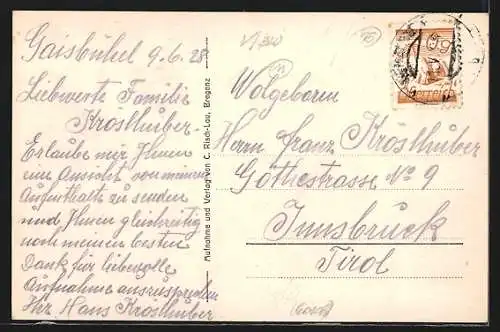 Gaisbühel 9.6.28
Liebwerte Familie
Kröslhuber
Erlaube mir, Ihnen
eine Ansicht von meinem
Aufenthalte zu senden
und Ihnen gleichzeitig
noch meinen besten
Dank für liebevolle
Aufnahme auszusprechen
Hans Kröslhuber
Aufnahme und Verlag von C. Risch-Lau, Bregenz
Wolgeborn
Herrn Franz Kröslhuber
Göthestrasse No 9
Innsbruck
Tirol